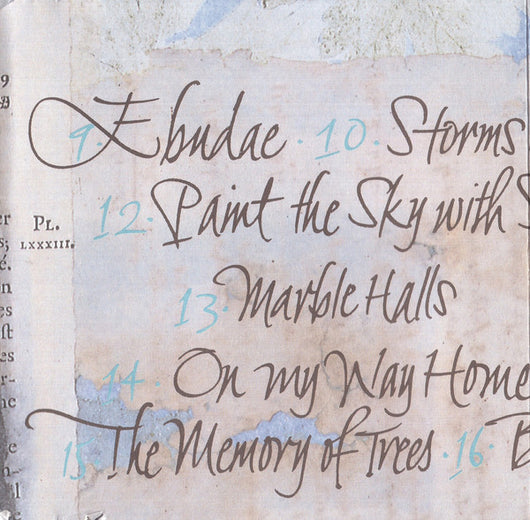 9. Ebudae · 10. Storms
12. Paint the Sky with S
13. Marble Halls
14. On my Way Home
15. The Memory of Trees · 16. B
PL.
LXXXIII.